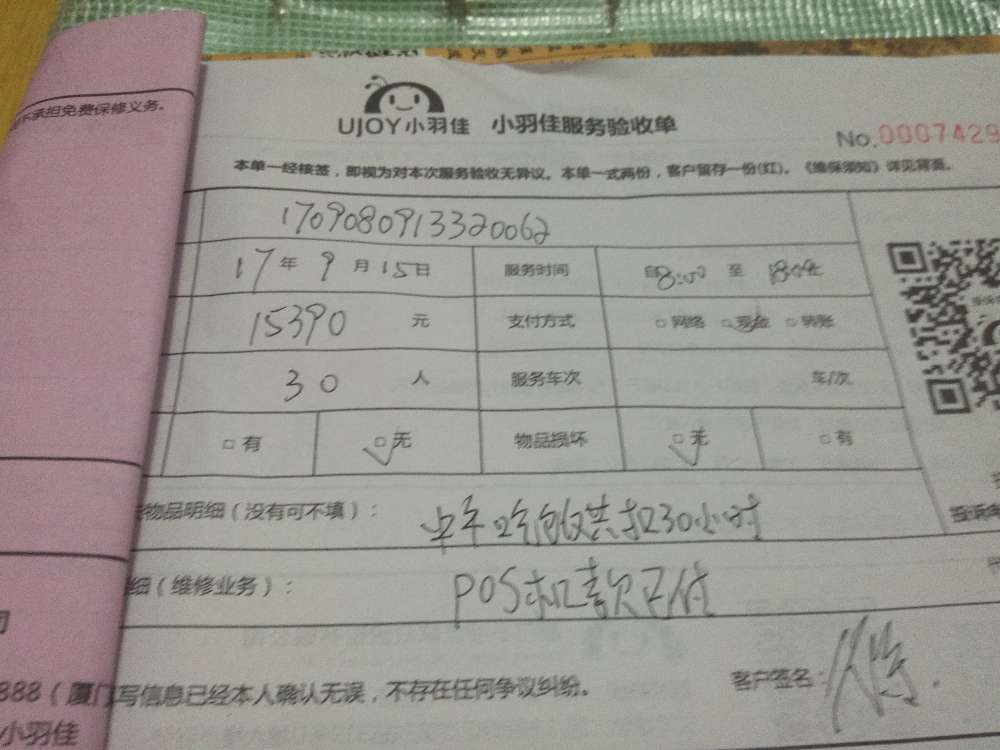 不承担免费保修义务。
UJOY小羽佳 小羽佳服务验收单
No.0007429
本单一经核签，即视为对本次服务验收无异议。本单一式两份，客户留存一份(红)。《维保须知》详见背面。
1709080913320062
17年9月15日 服务时间 自8:00 至 18:00
15390 元 支付方式 □网络 □现金 □转账
30 人 服务车次 车/次
□有 □无 物品损坏 □无 □有
物品明细（没有可不填）： 中午吃饭共扣30小时
细（维修业务）： POS机款已付
客户签名：
888（厦门
写信息已经本人确认无误，不存在任何争议纠纷。
小羽佳